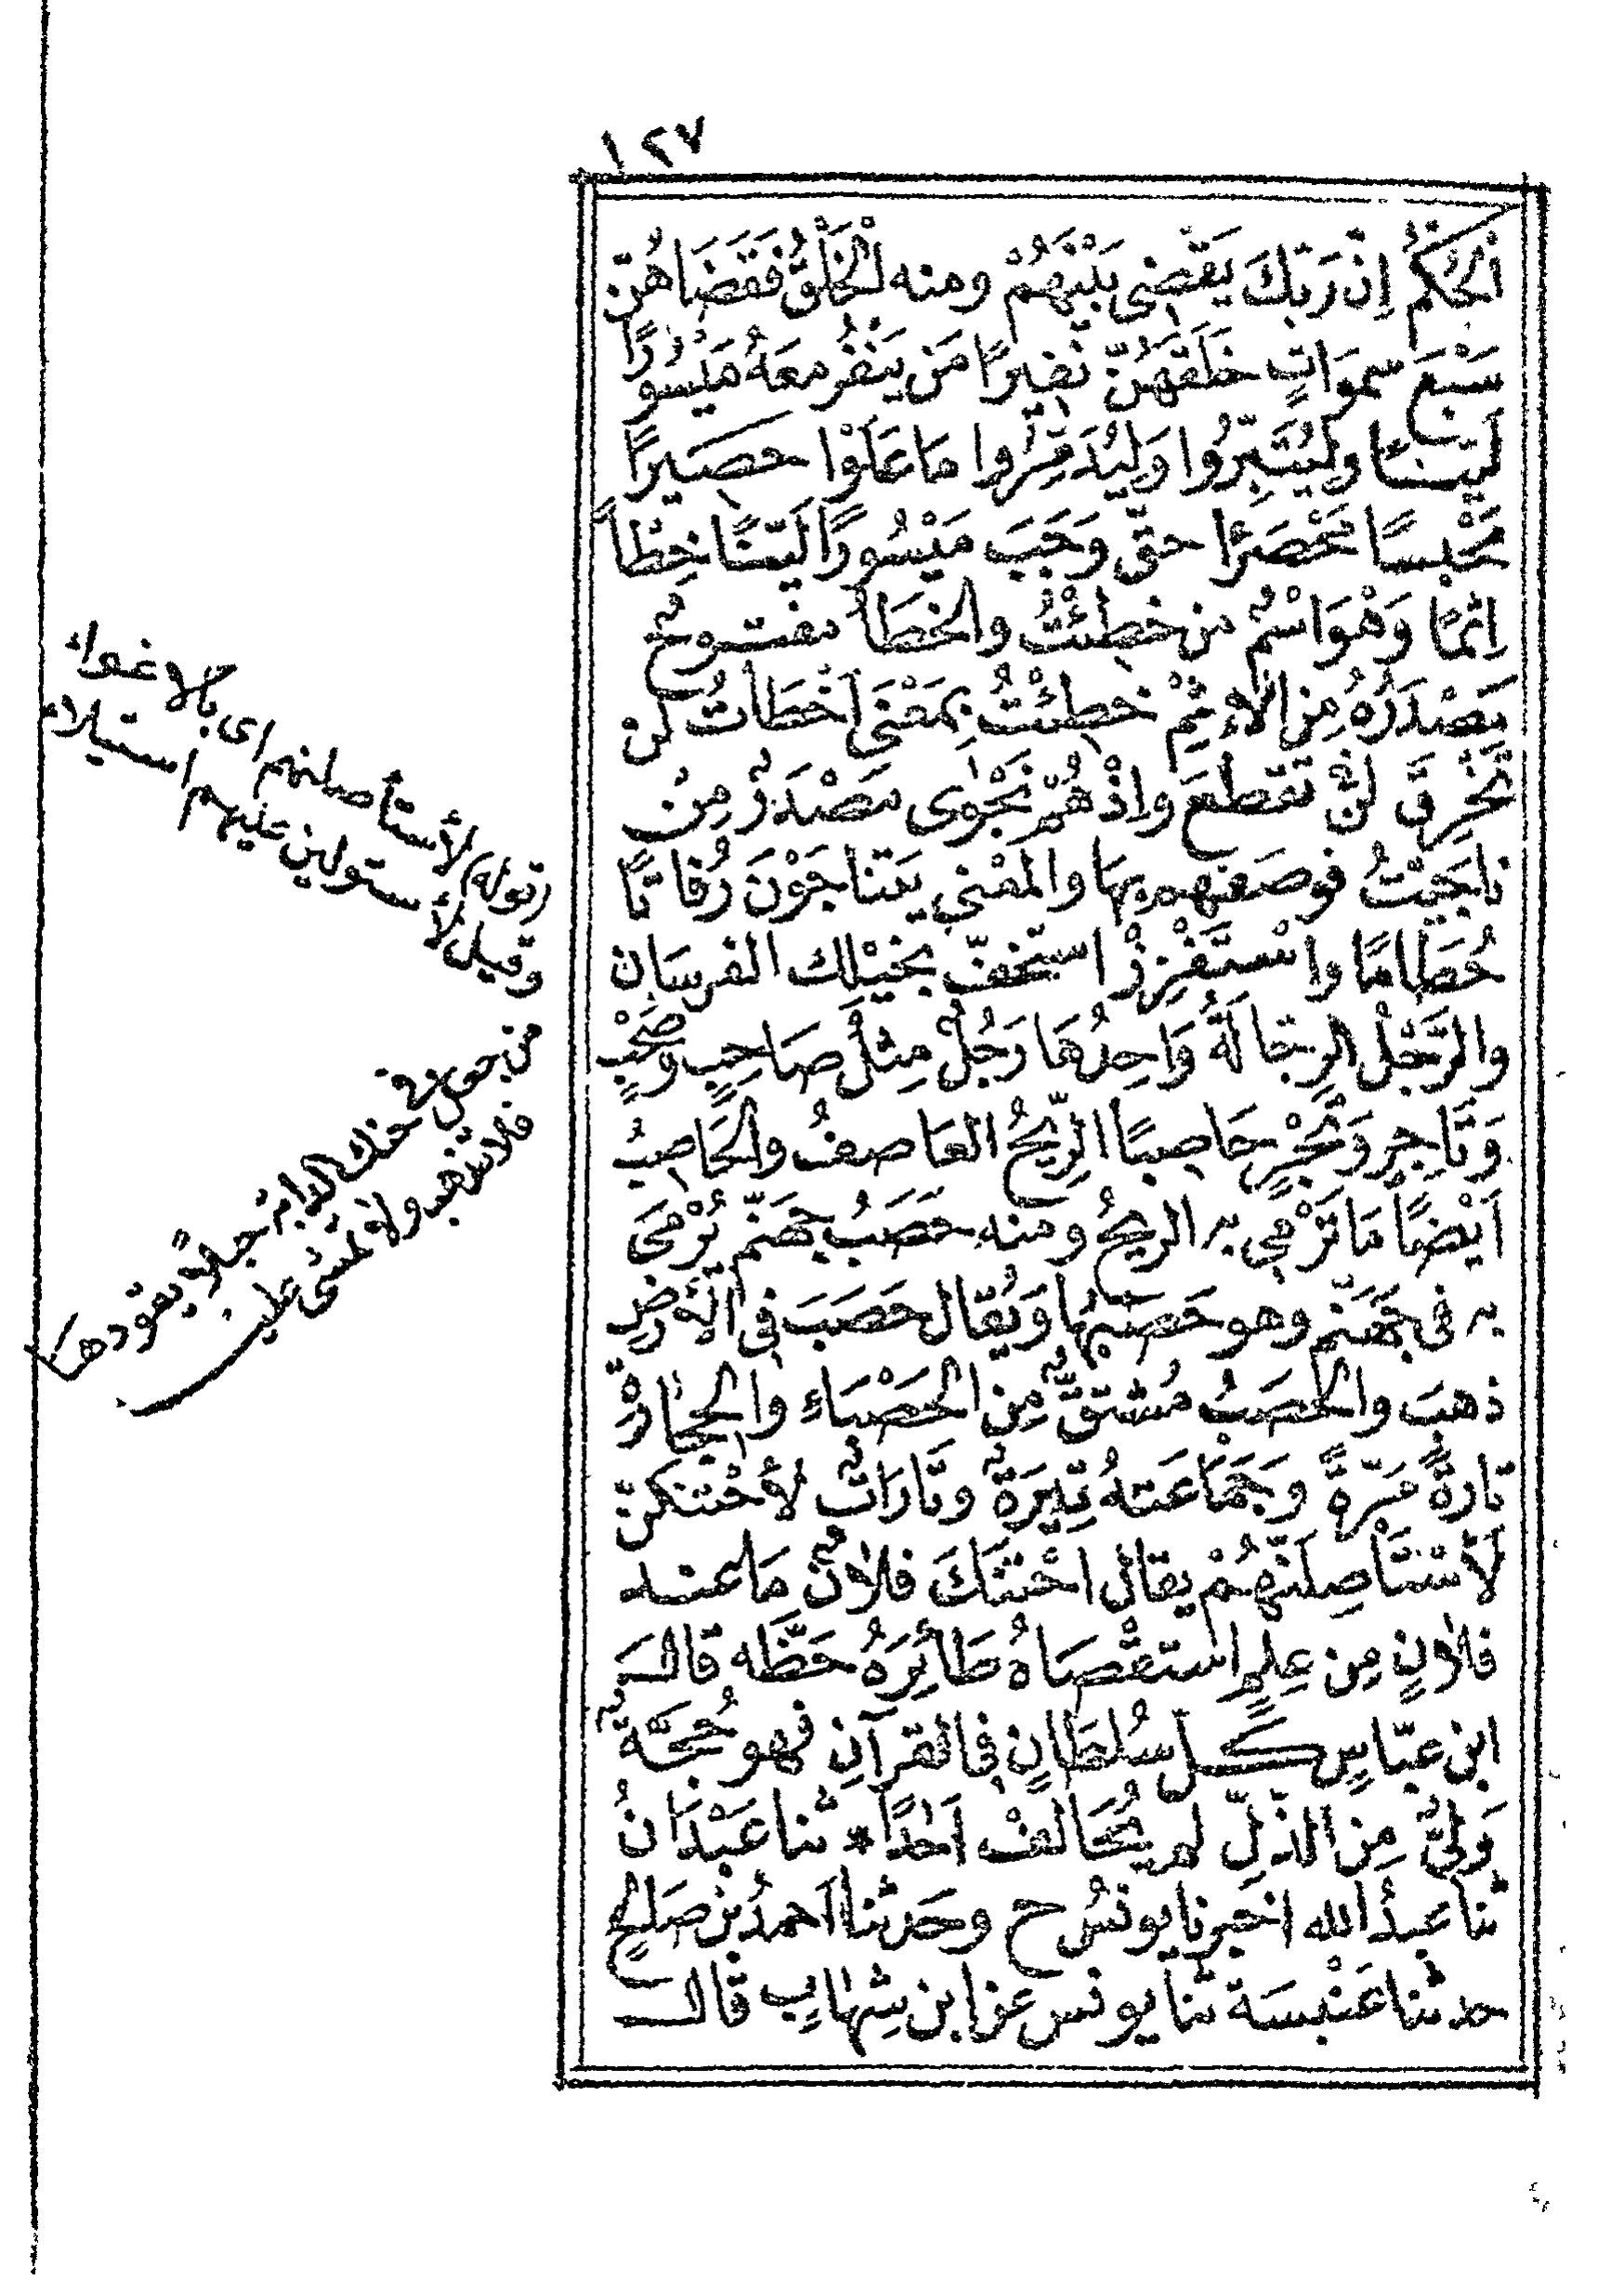 ١٢٧
الحُكْمُ اِنّ رَبّكَ يَقْضِى بَيْنَهُمْ ومنه الْخَلْقُ فَقَضَاهُنّ
سَبْعَ سموَاتٍ خَلَقَهُنّ نَفِيرًا مَن يَنْفُرُ معَهُ مَيْسُورًا
لَيّنًا ولِيُتَبِّرُوا وَلِيُدَمِّرُوا مَا عَلَوْا حصِيرًا
مَحْبِسًا مَحْصَرًا حقّ وَجَبَ مَيْسُورًا لَيّنًا خِطْأً
اِثمًا وَهْوَ اسْمٌ من خطِئْتُ والخَطَأُ مفتوحٌ
مَصْدَرُهُ مِنَ الاِثْمِ خطِئْتُ بِمَعْنَى اَخْطَأتُ لن
تَخْرِقَ لنْ تقطعَ واِذْ هُمْ نَجْوٰى مَصْدَرٌ مِنْ
ناجَيْتُ فوصَفهم بِهَا والمَعْنى يَتنَاجَوْنَ رُفاتًا
حُطَامًا واسْتَفْزِزْ استخفّ بخيْلِك الفرسَانِ
والرَّجْلُ الرجّالَةُ وَاحِدُهَا رَجُلٌ مِثلُ صَاحِبٍ وصَحْبٍ
وَتَاجِرٍ وَتَجْرٍ حَاصِبًا الرِّيحُ العَاصفُ والحَاصِبُ
اَيْضًا مَا تَرْمِى به الريحُ ومنهِ حَصَبُ جهَنّم يُرْمَى
به فى جَهَنّم وهو حَصَبُهَا وَيُقال حَصَبَ فِى الاَرْضِ
ذهبَ والحَصَبُ مُشتقٌّ مِن الحَصْبَاءِ والحِجَارةِ
تارةً مَرّةً وَجَمَاعَتهُ تِيَرَةٌ وتَارَاتٌ لأَحْتنكنّ
لَأَسْتَأْصِلَنّهُمْ يقال احْتنَكَ فلانٌ مَا عند
فلانٍ مِن عِلمٍ استقْصَاهُ طَائِرَهُ حَظَّه قالَ
ابن عبّاسٍ كلّ سُلطَانٍ فِى القرآنِ فهو حُجَّةٌ
وَلِىٌّ مِن الذّلّ لم يُحَالفْ اَحَدًا * ثنا عَبْدَانُ
ثنا عَبدُ الله اخبرنا يونسُ ح وحَدثنا اَحمدُ بْن صَالِحٍ
حدثنا عَنْبسَة ثنا يونس عن ابن شِهَابٍ قالَ
(قوله) لأستأصلنهم اى بالاغواء
وقيل لأستولين عليهم استيلاء
من جعل فى حنك الدابة حبلا يقودها
فلا تنقبد ولا تمشى عليه